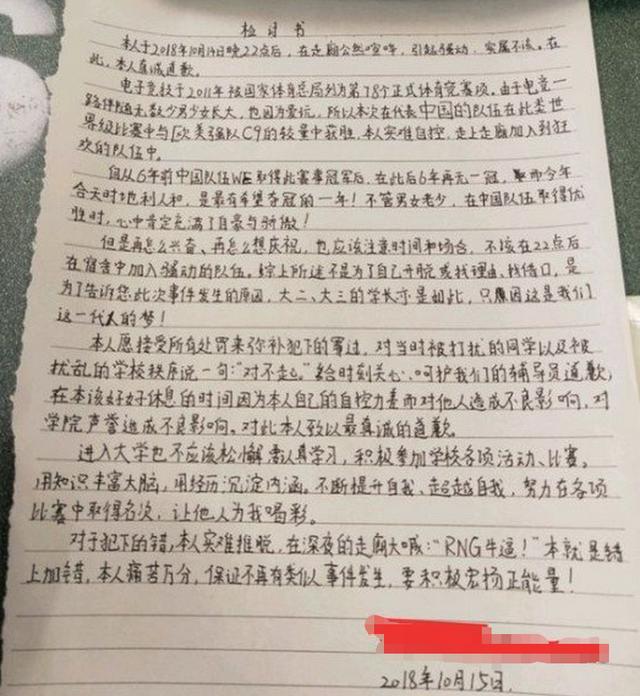 检讨书
本人于2018年10月14日晚22点后，在走廊公然喧哗，引起骚动，实属不该。在
此，本人真诚道歉。
电子竞技于2011年被国家体育总局列为第78个正式体育竞赛项。由于电竞一
路伴随无数少男少女长大，也因为爱玩，所以本次在代表中国的队伍在此类世
界级比赛中与欧美强队C9的较量中获胜，本人实难自控，走上走廊加入到狂
欢的队伍中。
自从6年前中国队伍WE取得此赛事冠军后，在此后6年再无一冠，而今年
含天时地利人和，是最有希望夺冠的一年！不管男女老少，在中国队伍取得优
胜时，心中肯定充满了自豪与骄傲！
但是再怎么兴奋、再怎么想庆祝，也应该注意时间和场合，不该在22点后
在宿舍中加入骚动的队伍。综上所述不是为了自己开脱或找理由、找借口，是
为了告诉您此次事件发生的原因，大二、大三的学长亦是如此，只原因这是我们
这一代人的梦！
本人愿接受所有处罚来弥补犯下的罪过，对当时被打扰的同学以及被
扰乱的学校秩序说一句："对不起"。给时刻关心、呵护我们的辅导员道歉，
在本该好好休息的时间因为本人自己的自控力差而对他人造成不良影响，对
学院声誉造成不良影响。对此本人致以最真诚的道歉。
进入大学也不应该松懈需认真学习，积极参加学校各项活动、比赛。
用知识丰富大脑，用经历沉淀内涵。不断提升自我、超越自我，努力在各项
比赛中取得名次，让他人为我喝彩。
对于犯下的错，本人实难推脱，在深夜的走廊大喊："RNG牛逼！"本就是错
上加错，本人痛苦万分，保证不再有类似事件发生，要积极宏扬正能量！
2018年10月15日